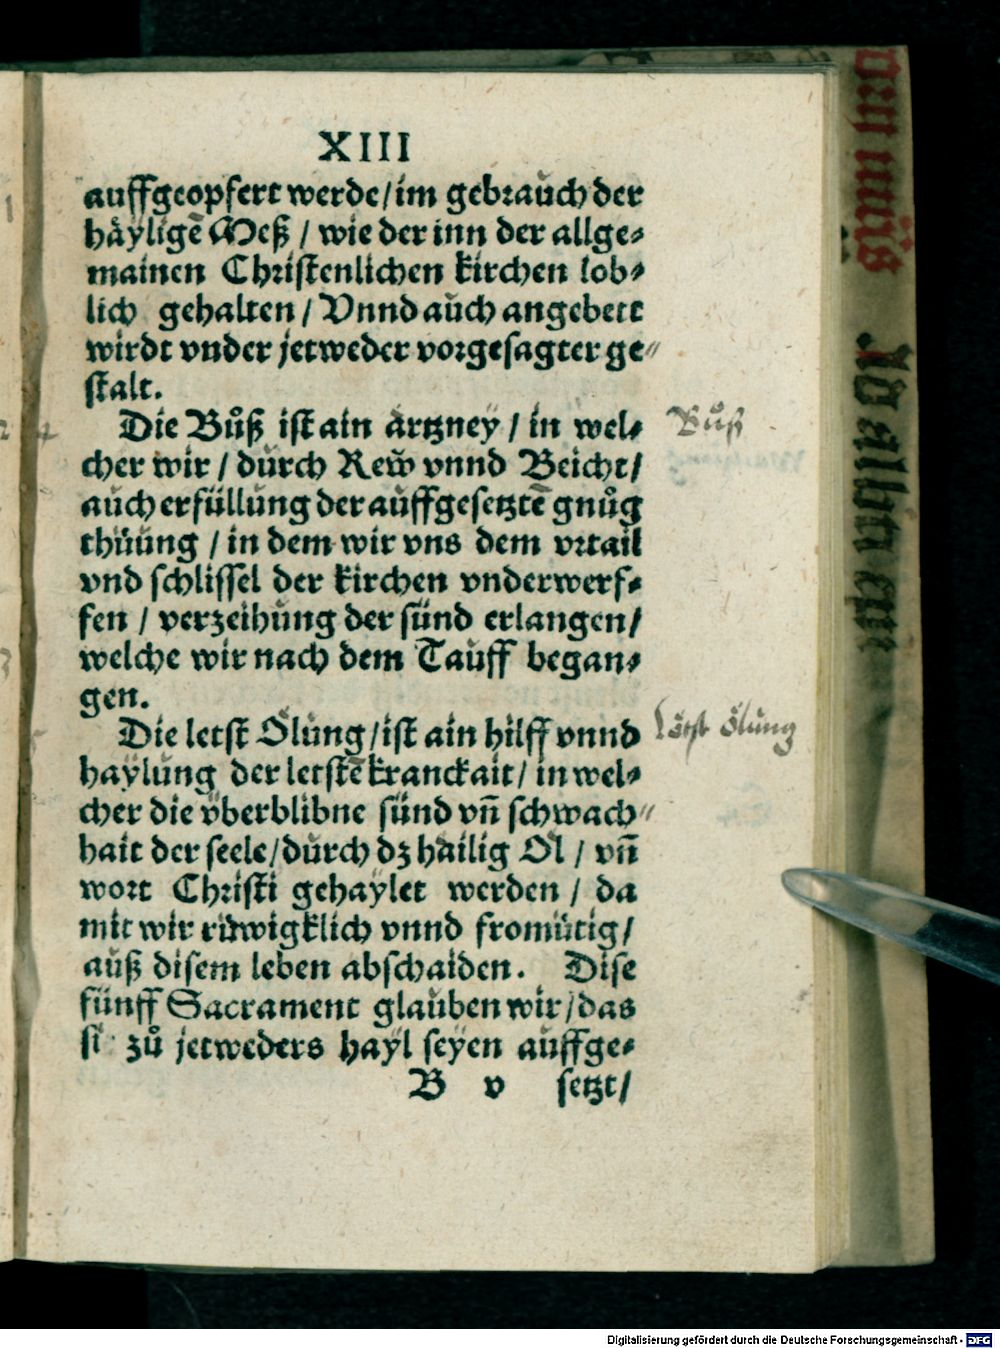 XIII
auffgeopfert werde/im gebrauch der
häyligē Meß / wie der inn der allge⸗
mainen Christenlichen kirchen lob⸗
lich gehalten / Vnnd auch angebett
wirdt vnder jetweder vorgesagter ge⸗
stalt.
Die Bůß ist ain ärtzney / in wel⸗
cher wir / durch Rew vnnd Beicht/
auch erfüllung der auffgesetztē gnůg
thüung / in dem wir vns dem vrtail
vnd schlissel der kirchen vnderwerf⸗
fen / verzeihung der sünd erlangen/
welche wir nach dem Tauff began⸗
gen.
Die letst Ölung/ist ain hilff vnnd
haylung der letstē kranckait/ in wel⸗
cher die vberblibne sünd vn̄ schwach⸗
hait der seele/durch dz hailig Öl / vn̄
wort Christi gehaylet werden / da
mit wir růwigklich vnnd fromütig/
auß disem leben abschaiden. Dise
fünff Sacrament glauben wir/das
si zů jetweders hayl seyen auffge⸗
B v setzt/
Bůß
Letst ölung
Digitalisierung gefördert durch die Deutsche Forschungsgemeinschaft - DFG